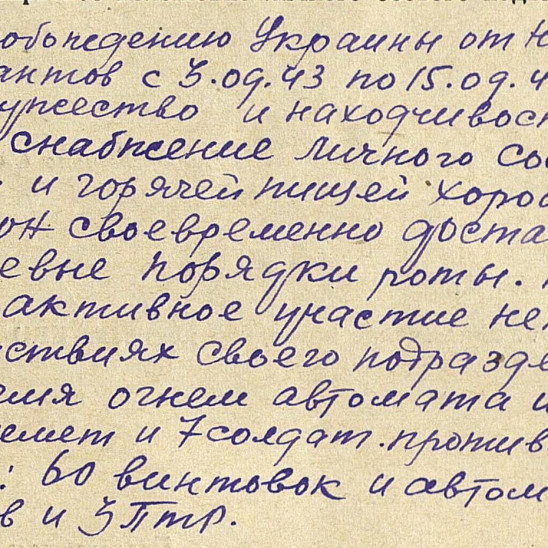 обождению Украины от н
антов с 5.09.43 по 15.09.4
ужество и находчивос
снабжение личного сос
и горячей пищей хоро
он своевременно доста
евые порядки роты.
активное участие не
ствиях своего подразде
емя огнем автомата и
емет и 7 солдат. против
: 60 винтовок и автом
в и 5 птр.